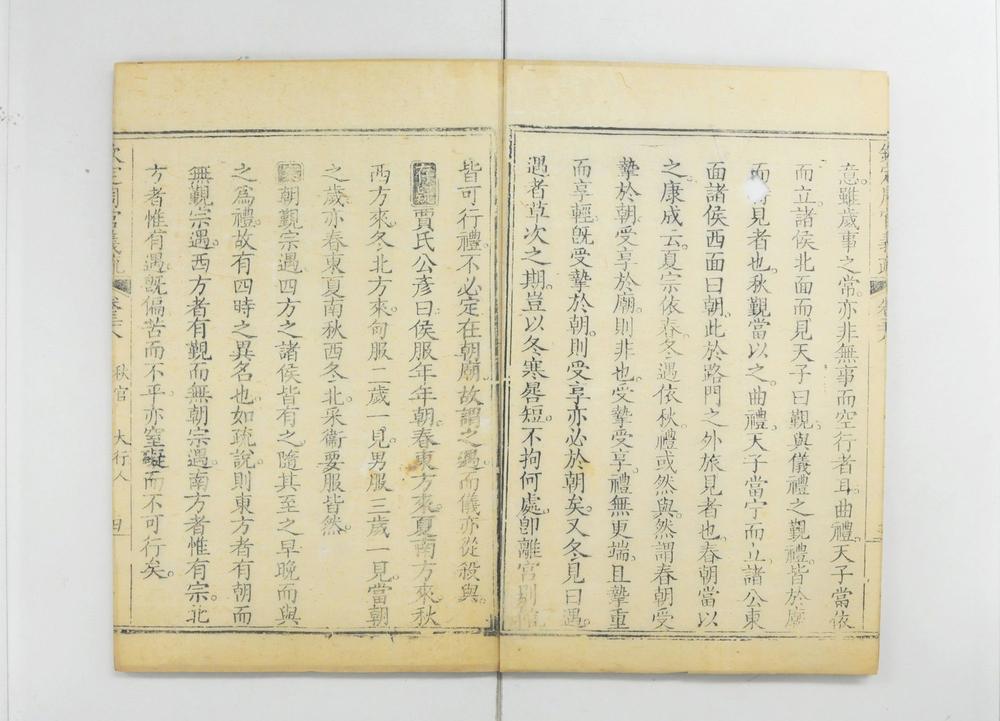 意雖歲事之常亦非無事而空行者耳曲禮天子當依
而立諸侯北面而見天子曰覲與儀禮之覲禮皆於廟
而見者也秋覲當以之曲禮天子當宁而立諸公東
面諸侯西面曰朝此於路門之外旅見者也春朝當以
之康成云夏宗依春冬遇依秋禮或然與然謂春朝受
摯於朝受享於廟則非也受摯受享禮無更端且摯重
而享輕旣受摯於朝則受享亦必於朝矣又冬見曰遇
遇者草次之期豈以冬寒晷短不拘何處卽離宮別館
皆可行禮不必定在朝廟故謂之遇而儀亦從殺與
存疑賈氏公彥曰侯服年年朝春東方來夏南方來秋
西方來冬北方來甸服二歲一見男服三歲一見當朝
之歲亦春東夏南秋西冬北采衞要服皆然
案朝覲宗遇四方之諸侯皆有之隨其至之早晚而與
之爲禮故有四時之異名也如疏說則東方者有朝而
無覲宗遇西方者有覲而無朝宗遇南方者惟有宗北
方者惟有遇旣偏苦而不平亦窒礙而不可行矣
欽定周官義疏 卷三十八 秋官 大行人 四